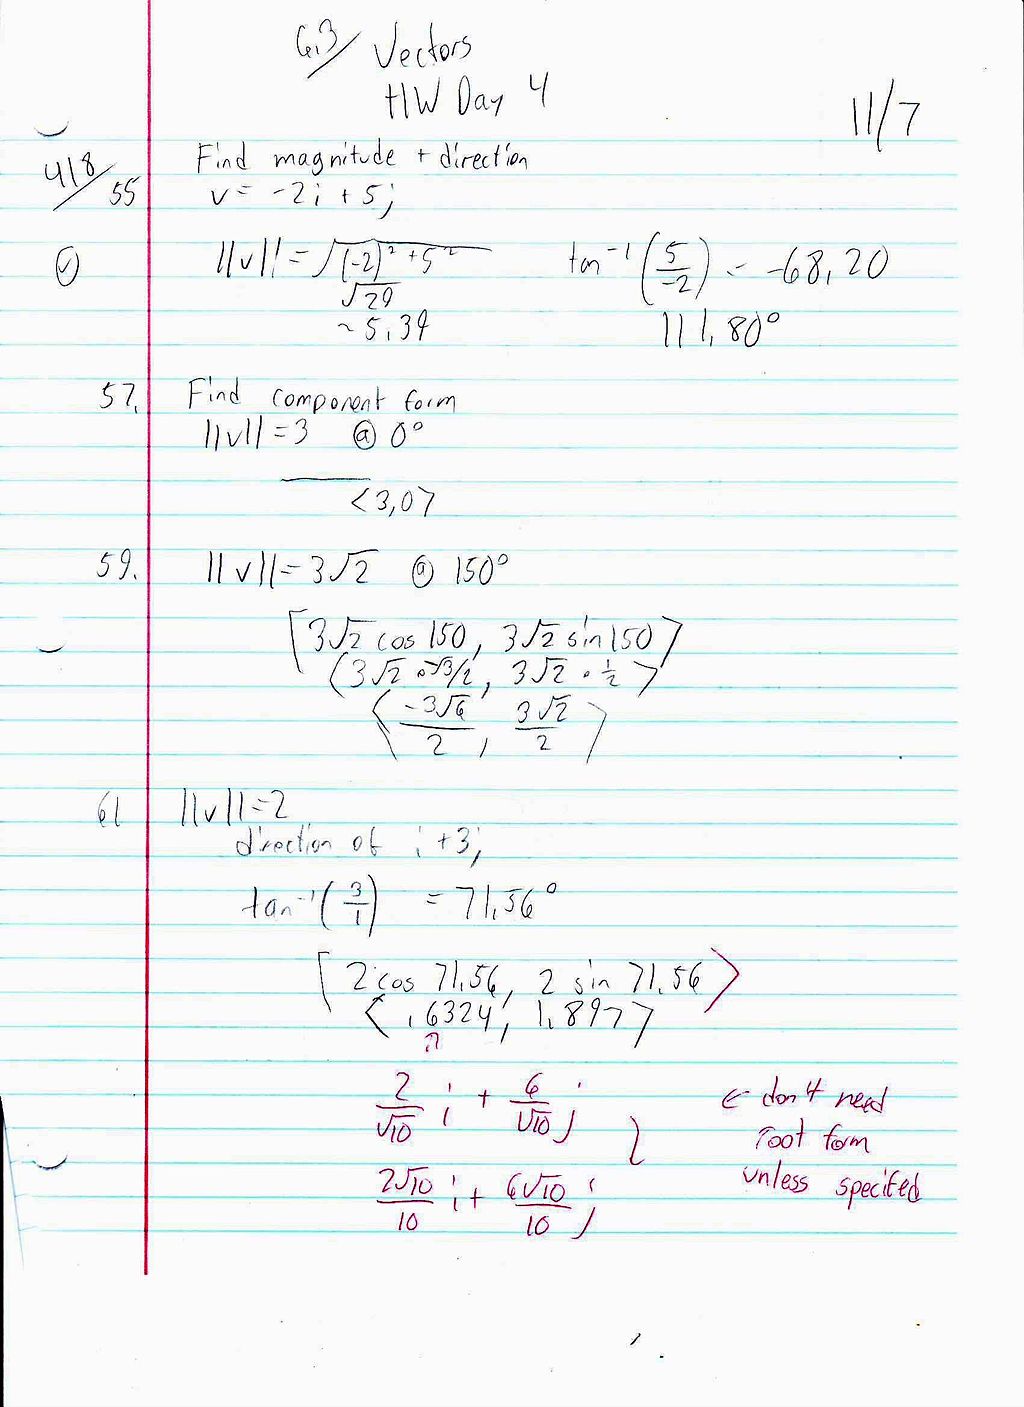 6.3/ Vectors
HW Day 4
11/7
418/55 Find magnitude + direction
v = -2i + 5j
||v|| = √(-2)² + 5² tan⁻¹(5/-2) = -68.20
√29
~5.39 111.80°
57. Find component form
||v|| = 3 @ 0°
<3,0>
59. ||v|| = 3√2 @ 150°
[3√2 cos 150, 3√2 sin 150>
(3√2 · -√3/2, 3√2 · 1/2>
<-3√6/2, 3√2/2>
61 ||v|| = 2
direction of i + 3j
tan⁻¹(3/1) = 71.56°
[2 cos 71.56, 2 sin 71.56>
<.6324, 1.897>
2/√10 i + 6/√10 j ← don't need
root form
2√10/10 i + 6√10/10 j unless specifed